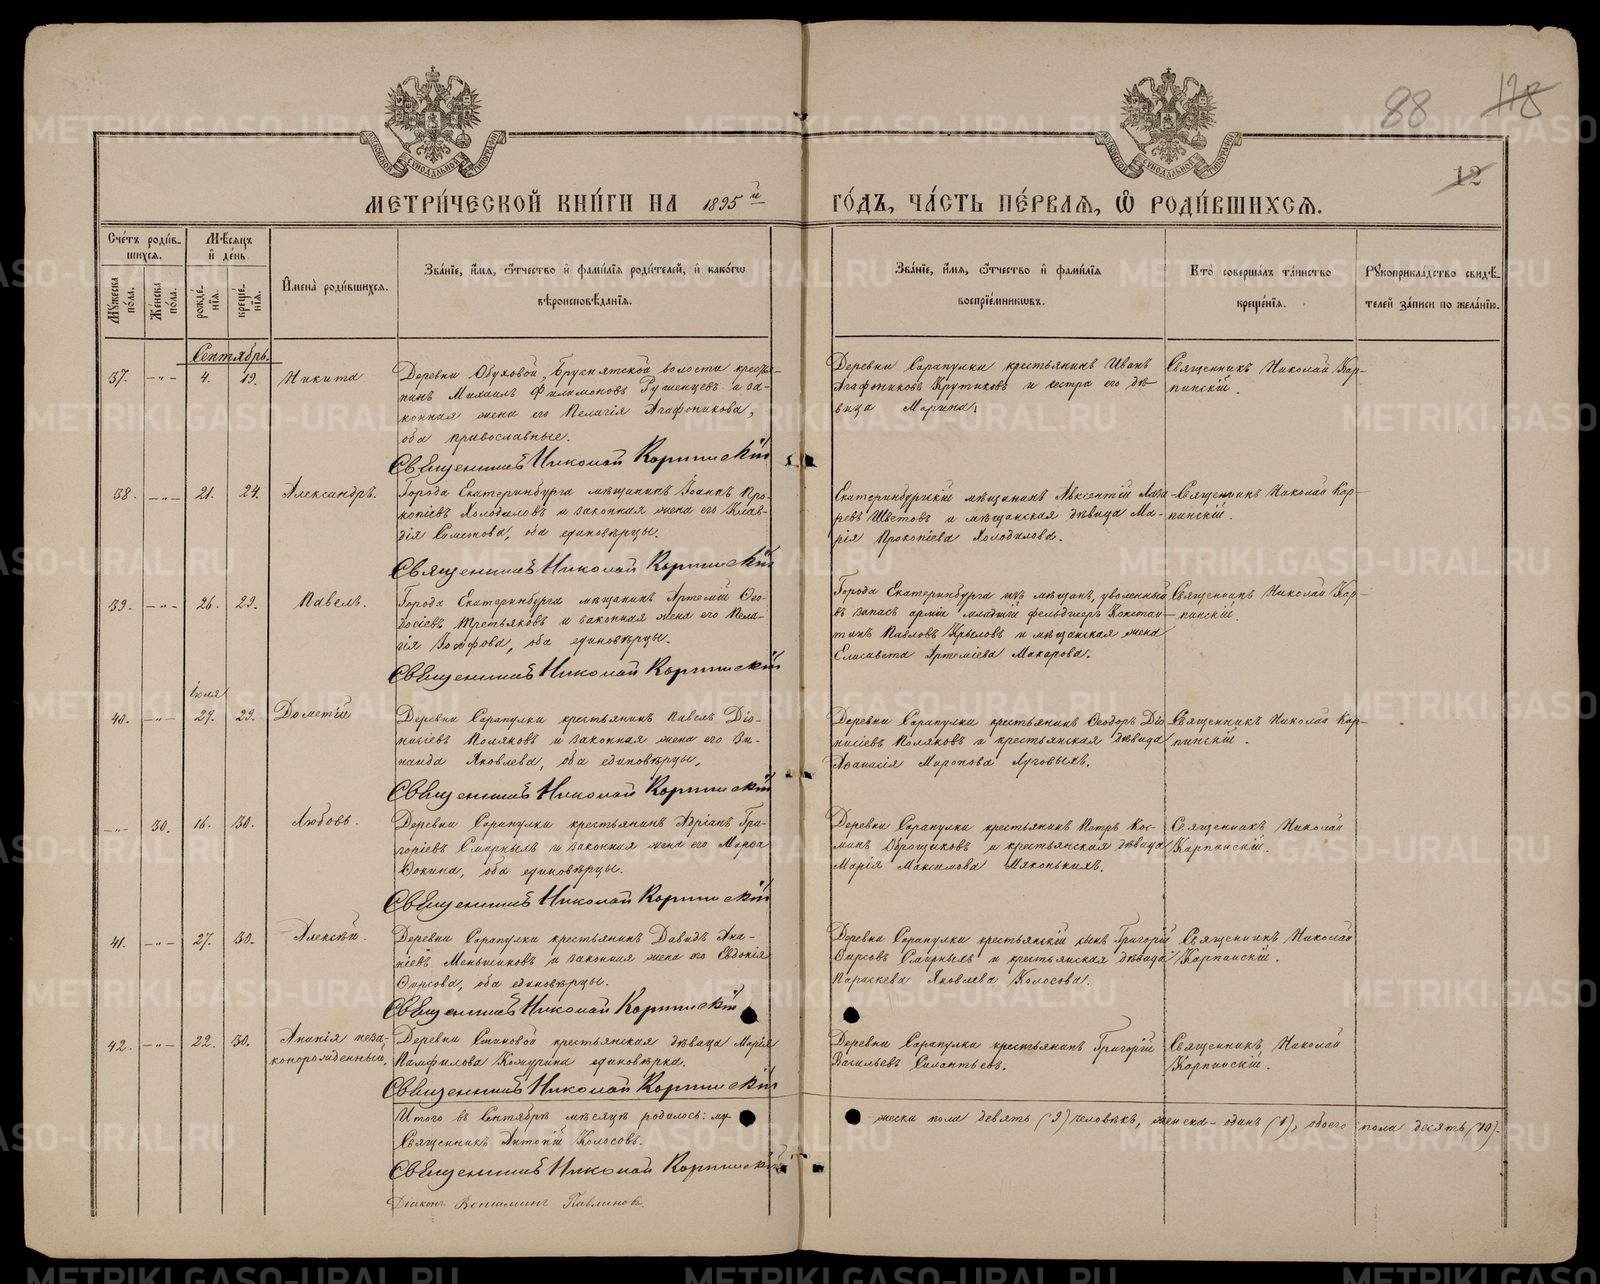 88
118
12
МОСКОВСКОЙ СѴНОДАЛЬНОЙ ТИПОГРАФІИ
МОСКОВСКОЙ СѴНОДАЛЬНОЙ ТИПОГРАФІИ
МЕТРИ́ЧЕСКОЙ КНИ́ГИ НА 1895й ГО́ДЪ, ЧА́СТЬ ПЕ́РВАЯ, Ѡ РОДИ́ВШИХСЯ.
Сче́тъ роди́в-
шихся.
Мѣ́сяцъ
и҆ де́нь
Мꙋ́жеска
по́ла.
Же́нска
по́ла.
рожде́-
нїя.
креще́-
нїя.
И҆мена̀ роди́вшихся.
Зва́нїе, и҆́мя, ѻ҆́тчество и҆ фами́лїя роди́телей, и҆ како́гѡ
вѣроисповѣ́данїя.
Зва́нїе, и҆́мя, ѻ҆́тчество и҆ фами́лїя
воспрїе́мникѡвъ.
Кто̀ соверша́лъ та́инство
креще́нїя.
Рꙋкоприкла́дство свидѣ́-
телей за́писи по жела́нїю.
Сентябрь.
37. -„- 4. 19. Никита
Деревни Обуховой, Бруснятской волости крестья-
нинъ Михаилъ Филимоновъ Рушенцевъ и за-
конная жена его Пелагія Агафоникова,
оба православные.
Священникъ Николай Карпинскій
Деревни Сарапулки крестьянинъ Иванъ
Агафониковъ Крутиковъ и сестра его дѣ-
вица Марина.
Священникъ Николай Кар-
пинскій.
38. -„- 21. 24. Александръ.
Города Екатеринбурга мѣщанинъ Іоаннъ Про-
копіевъ Холодиловъ и законная жена его Клав-
дія Симонова, оба единовѣрцы.
Священникъ Николай Карпинскій
Екатеринбургскій мѣщанинъ Авксентій Лаза-
ревъ Цвѣтовъ и мѣщанская дѣвица Ма-
рія Прокопіева Холодилова.
Священникъ Николай Кар-
пинскій.
39. -„- 26. 29. Павелъ.
Города Екатеринбурга мѣщанинъ Артемій Ѳео-
досіевъ Третьяковъ и законная жена его Пела-
гія Іосифова, оба единовѣрцы.
Священникъ Николай Карпинскій
Города Екатеринбурга изъ мѣщанъ, уволенный
въ запасъ арміи младшій фельдшеръ Констан-
тинъ Павловъ Крыловъ и мѣщанская жена
Елисавета Артеміева Макарова.
Священникъ Николай Кар-
пинскій.
Іюля
40. -„- 29. 29. Дометій
Деревни Сарапулки крестьянинъ Павелъ Діо-
нисіевъ Поляковъ и законная жена его Зи-
наида Яковлева, оба единовѣрцы.
Священникъ Николай Карпинскій
Деревни Сарапулки крестьянинъ Ѳеодоръ Діо-
нисіевъ Поляковъ и крестьянская дѣвица
Аѳанасія Миронова Луговыхъ.
Священникъ Николай Кар-
пинскій.
-„- 30. 16. 30. Любовь.
Деревни Сарапулки крестьянинъ Адріанъ Гри-
горіевъ Смирныхъ и законная жена его Марѳа
Ѳокина, оба единовѣрцы.
Священникъ Николай Карпинскій
Деревни Сарапулки крестьянинъ Петръ Кос-
минъ Оброщиковъ и крестьянская дѣвица
Марія Максимова Мяконькихъ.
Священникъ Николай
Карпинскій.
41. -„- 27. 30. Алексѣй.
Деревни Сарапулки крестьянинъ Давидъ Ана-
ніевъ Меньшиковъ и законная жена его Евдокія
Ѳирсова, оба единовѣрцы.
Священникъ Николай Карпинскій
Деревни Сарапулки крестьянскій сынъ Григорій
Ѳирсовъ Смирныхъ и крестьянская дѣвица
Параскева Яковлева Колосова.
Священникъ Николай
Карпинскій.
42. -„- 22. 30. Ананія неза-
коннорожденный.
Деревни Становой крестьянская дѣвица Марія
Памфилова единовѣрка.
Священникъ Николай Карпинскій
Деревни Сарапулки крестьянинъ Григорій
Васильевъ Силантьевъ.
Священникъ Николай
Карпинскій.
Итого въ Сентябрѣ мѣсяцѣ родилось: му-
жеска пола девять (9) человѣкъ, женска - одинъ (1), обоего пола десять (10).
Священникъ Антоній Колосовъ.
Священникъ Николай Карпинскій
Діаконъ Веніаминъ Павлиновъ.
METRIKI.GASO-URAL.RU